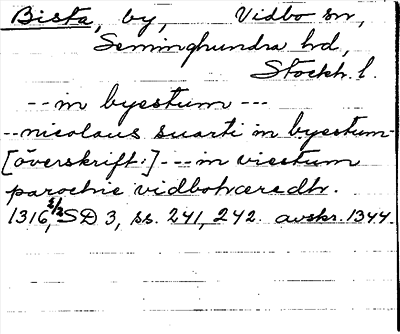 Bista, by, Vidbo sn,
Seminghundra hd,
Stockh. l.
-- in byestum ---
-- nicolaus suarti in byestum-
[överskrift:] --- in viestum
parochie vidbohæredh.
1316 2/2 SD 3, ss. 241, 242. avskr. 1344.